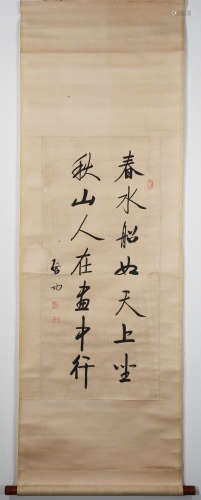 春水船如天上坐
秋山人在画中行
启功